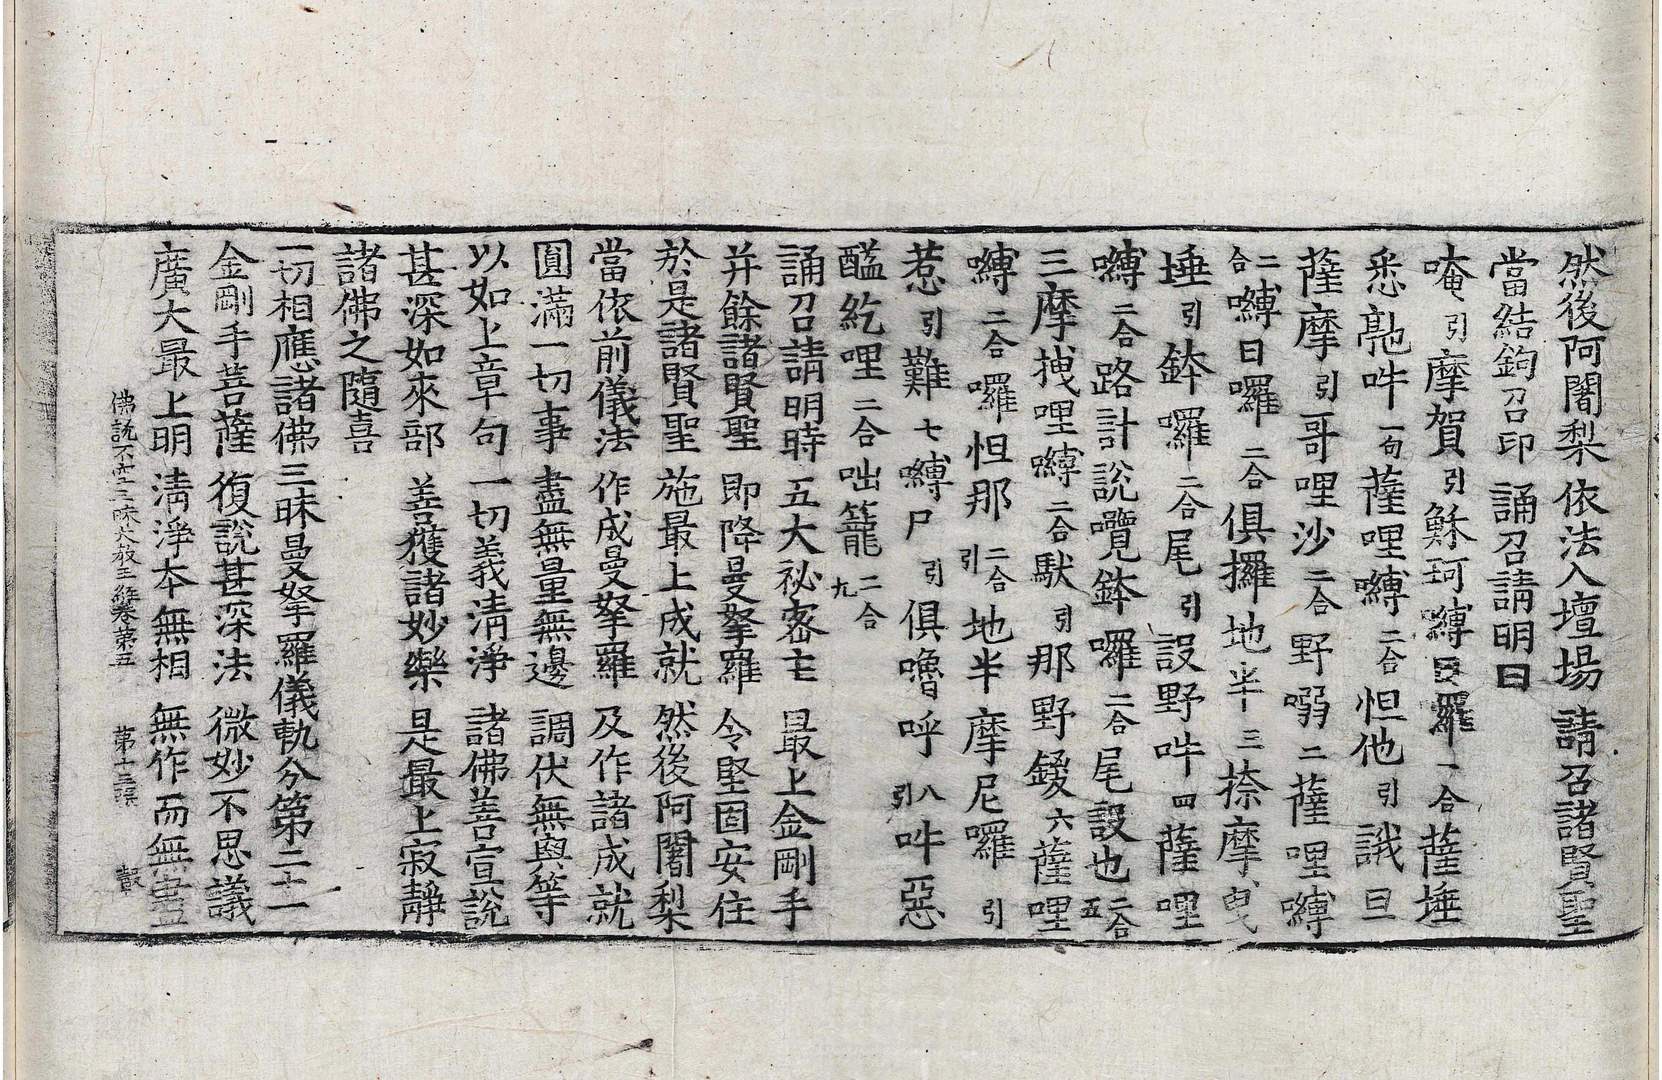 然後阿闍梨 依法入壇場 請召諸賢聖
當結鉤召印 誦召請明曰
唵引摩賀引穌珂嚩日囉二合薩埵
悉馱吽一句薩哩嚩二合怛他引誐曰
薩摩引哥哩沙二合野弱二薩哩嚩
二合嚩日囉二合俱攞地半三捺摩曳
埵引鉢囉二合尾引設野吽四薩哩
嚩二合路計說嚂鉢囉二合尾設也二合五
三摩拽哩嚩二合馱引那野鑁六薩哩
嚩二合囉怛那二合引地半摩尼囉引
惹引難七嚩尸引俱嚕呼引八吽惡
醯紇哩二合咄籠二合九
誦召請明時 五大祕密主 最上金剛手
并餘諸賢聖 即降曼拏羅 令堅固安住
於是諸賢聖 施最上成就 然後阿闍梨
當依前儀法 作成曼拏羅 及作諸成就
圓滿一切事 盡無量無邊 調伏無與等
以如上章句 一切義清淨 諸佛善宣說
甚深如來部 善獲諸妙樂 是最上寂靜
諸佛之隨喜
一切相應諸佛三昧曼拏羅儀軌分第二十一
金剛手菩薩 復說甚深法 微妙不思議
廣大最上明 清淨本無相 無作而無盡
佛說不空三昧大教王經卷第五 第十三張 縠